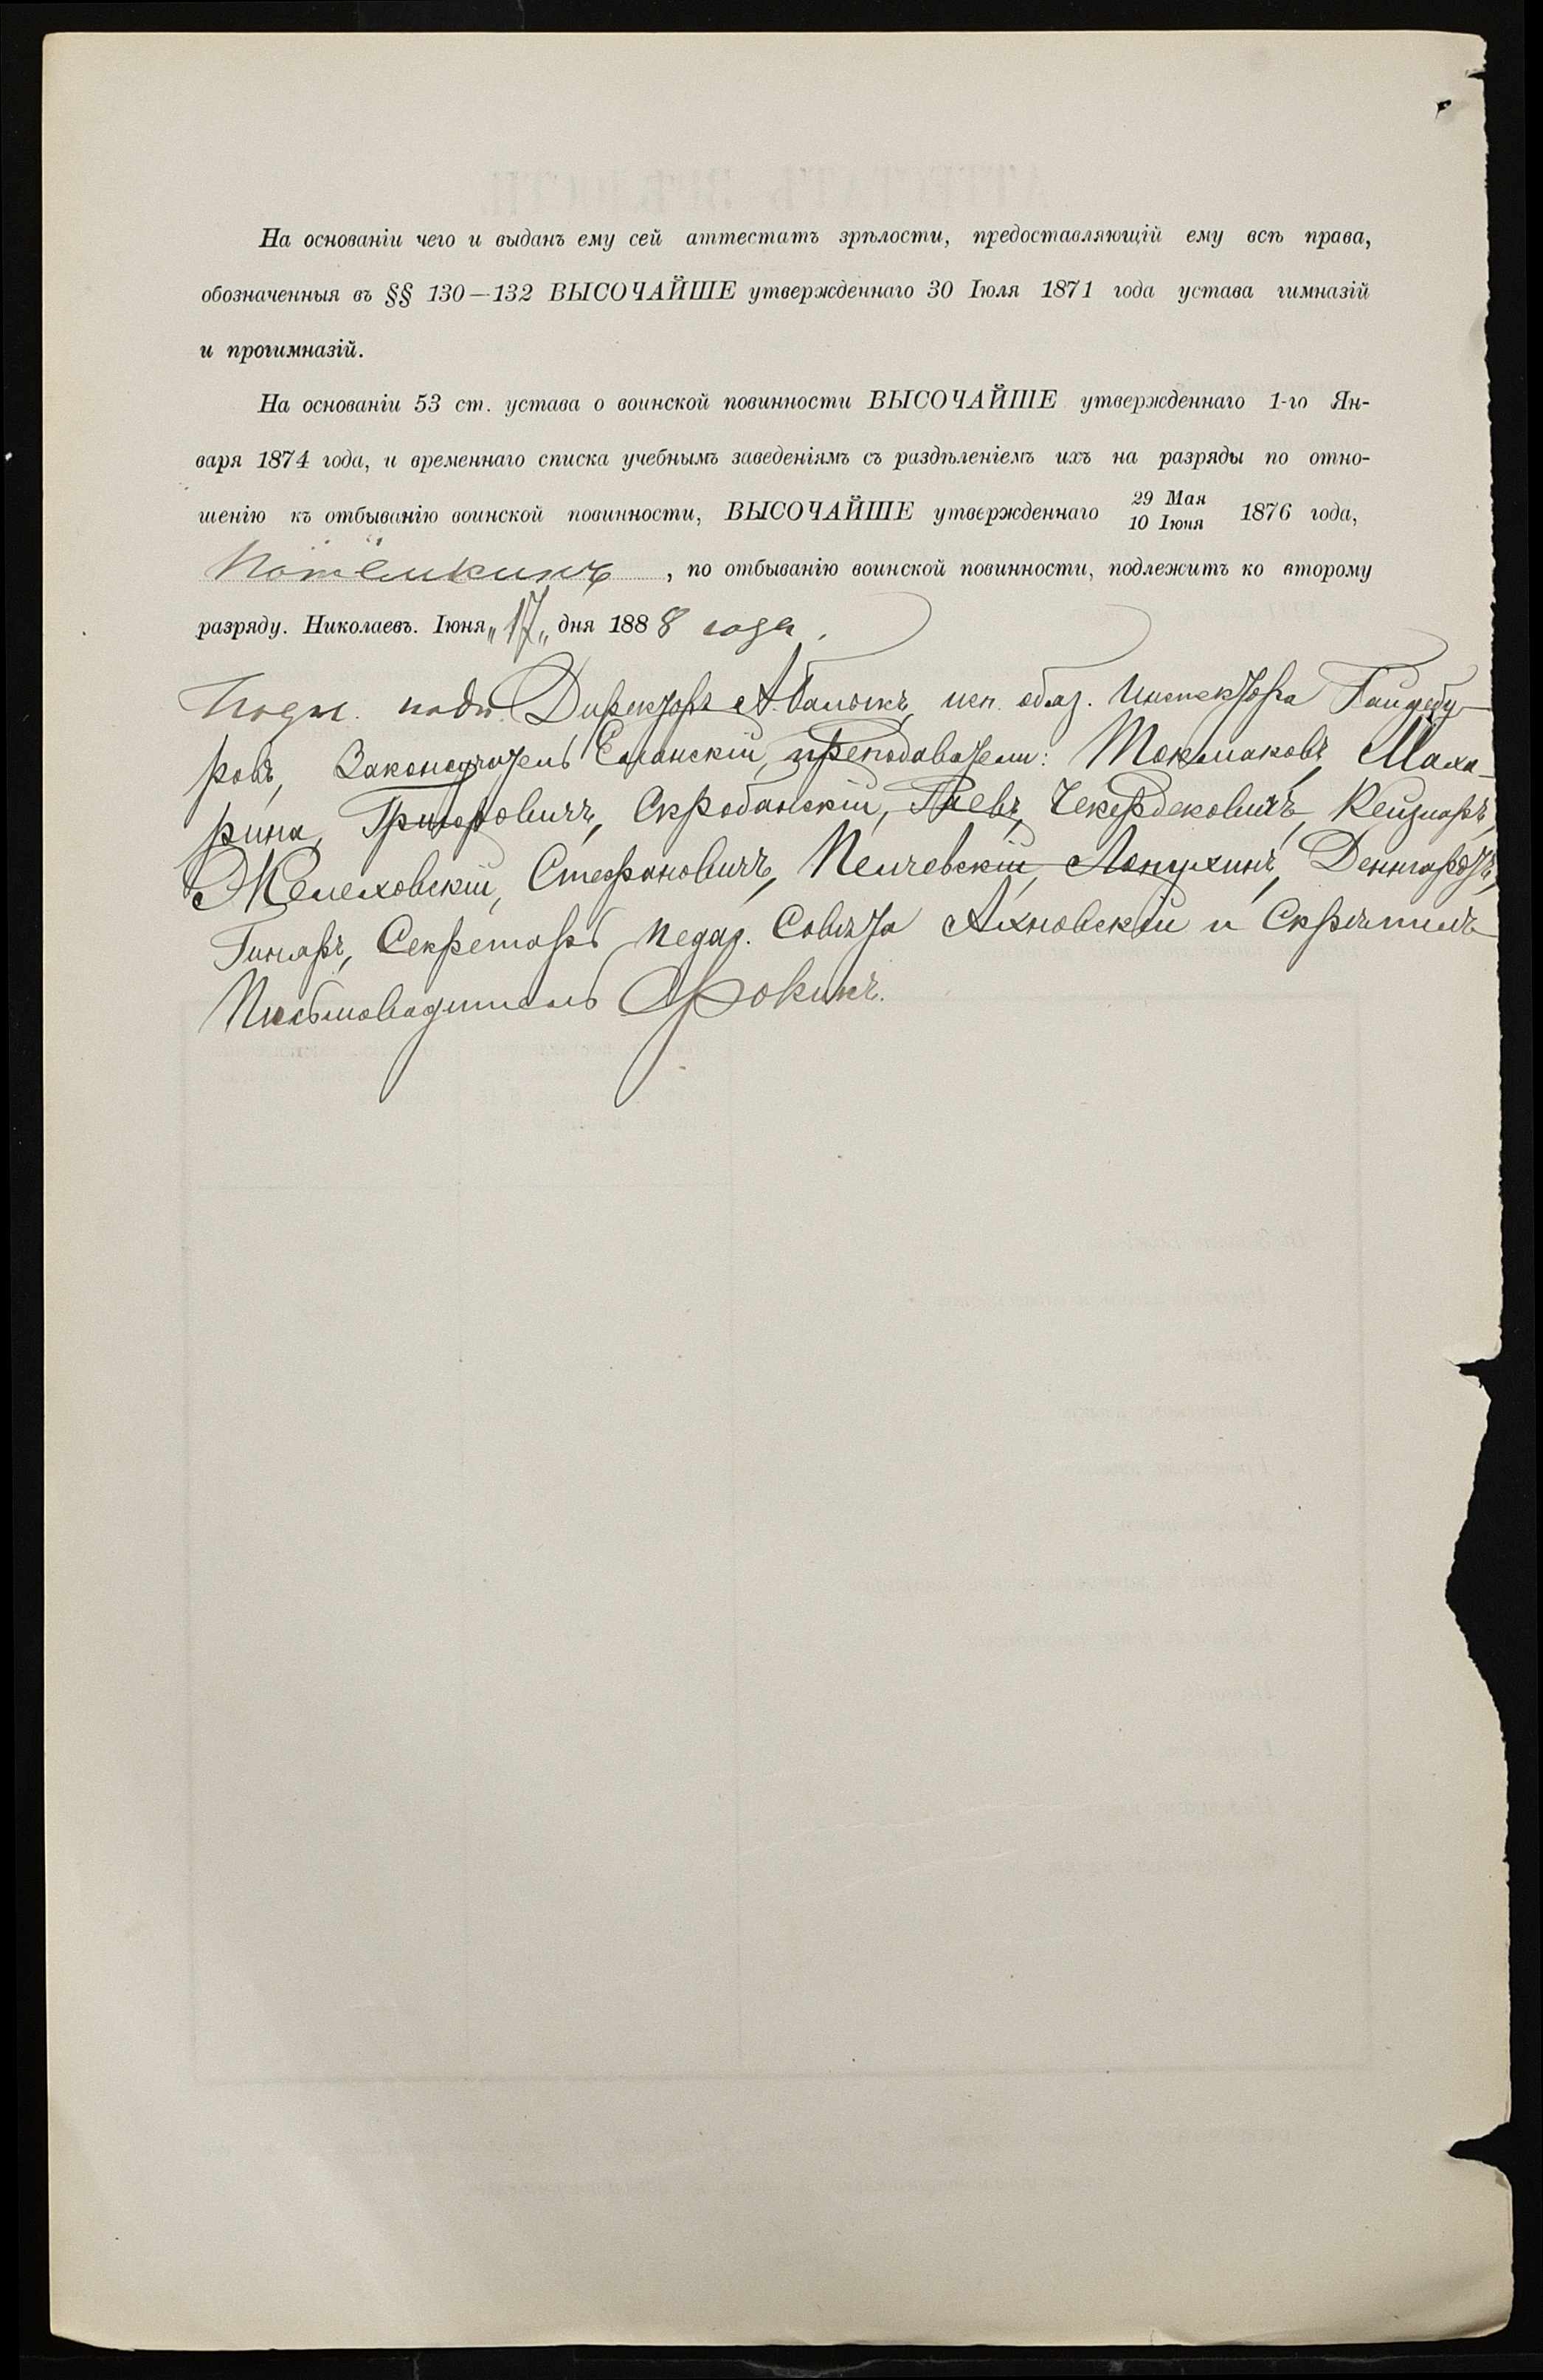 На основаніи чего и выданъ ему сей аттестатъ зрѣлости, предоставляющій ему всѣ права,
обозначенныя въ §§ 130—132 ВЫСОЧАЙШЕ утвержденнаго 30 Іюля 1871 года устава гимназій
и прогимназій.
На основаніи 53 ст. устава о воинской повинности ВЫСОЧАЙШЕ утвержденнаго 1-го Ян-
варя 1874 года, и временнаго списка учебнымъ заведеніямъ съ раздѣленіемъ ихъ на разряды по отно-
шенію къ отбыванію воинской повинности, ВЫСОЧАЙШЕ утвержденнаго 29 Мая 10 Іюня 1876 года,
Потёмкинъ, по отбыванію воинской повинности, подлежитъ ко второму
разряду. Николаевъ. Іюня „17„ дня 1888 года.
Подл. подп. Директоръ А. исп. обяз. Инспектора Гайдебу-
ровъ, Законоучитель Еланскій, преподаватели: Токмаковъ, Маха-
рина, Григоровичъ, Скробанскій, Гаевъ, Чекердековичъ, Кейзмаръ,
Желеховскій, Стефановичъ, Пелчевскій, Лопухинъ, Денгардтъ,
Секретарь педаг. Совѣта Ахновскій и Скрѣпилъ
Письмоводитель Фокинъ.